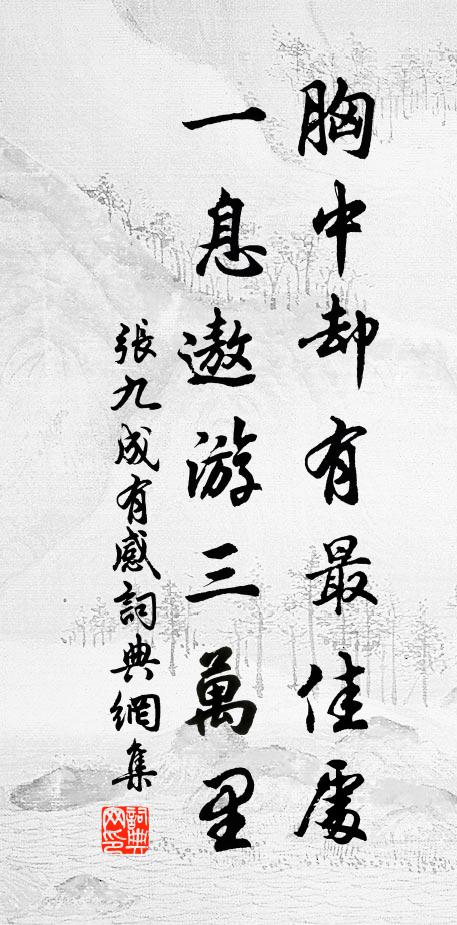 胸中却有最佳處
一息遨游三萬里
張九成有感詞典網集
詞典網印